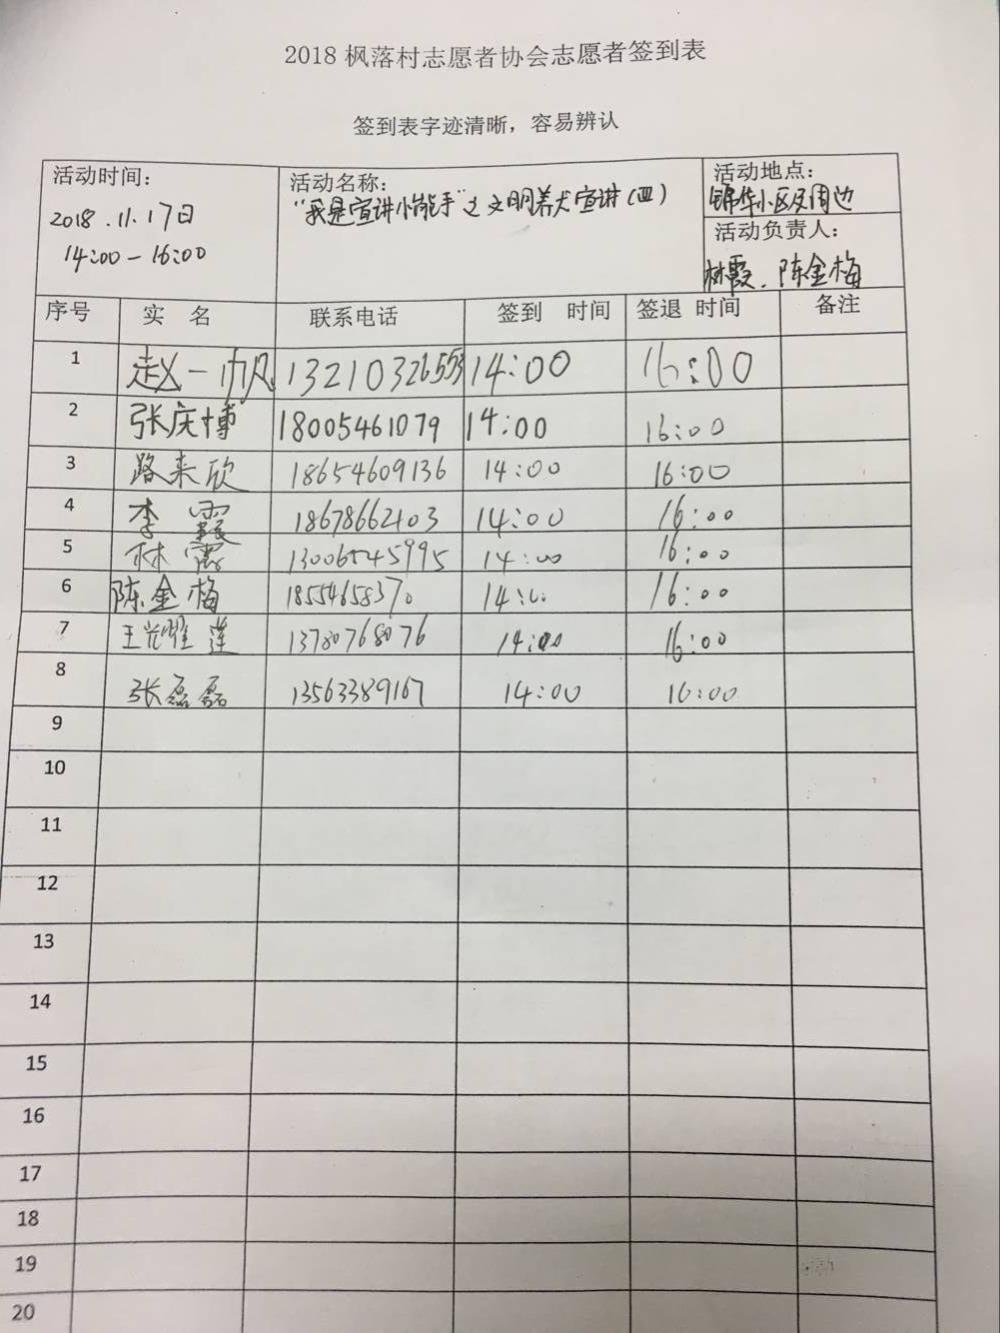 2018 枫落村志愿者协会志愿者签到表
签到表字迹清晰，容易辨认
活动时间：
2018.11.17日
14:00-16:00
活动名称：
“我是宣讲小能手”之文明养犬宣讲(四)
活动地点：
锦华小区及周边
活动负责人：
林霞、陈金梅
序号 实 名 联系电话 签到 时间 签退 时间 备注
1 赵一帆 13210326553 14:00 16:00
2 张庆博 18005461079 14:00 16:00
3 路来欣 18654609136 14:00 16:00
4 李 霞 18678662103 14:00 16:00
5 林霞 13006545995 14:00 16:00
6 陈金梅 18554658370 14:00 16:00
7 王 莲 13780768076 14:00 16:00
8 张磊磊 13563389167 14:00 16:00
9
10
11
12
13
14
15
16
17
18
19
20